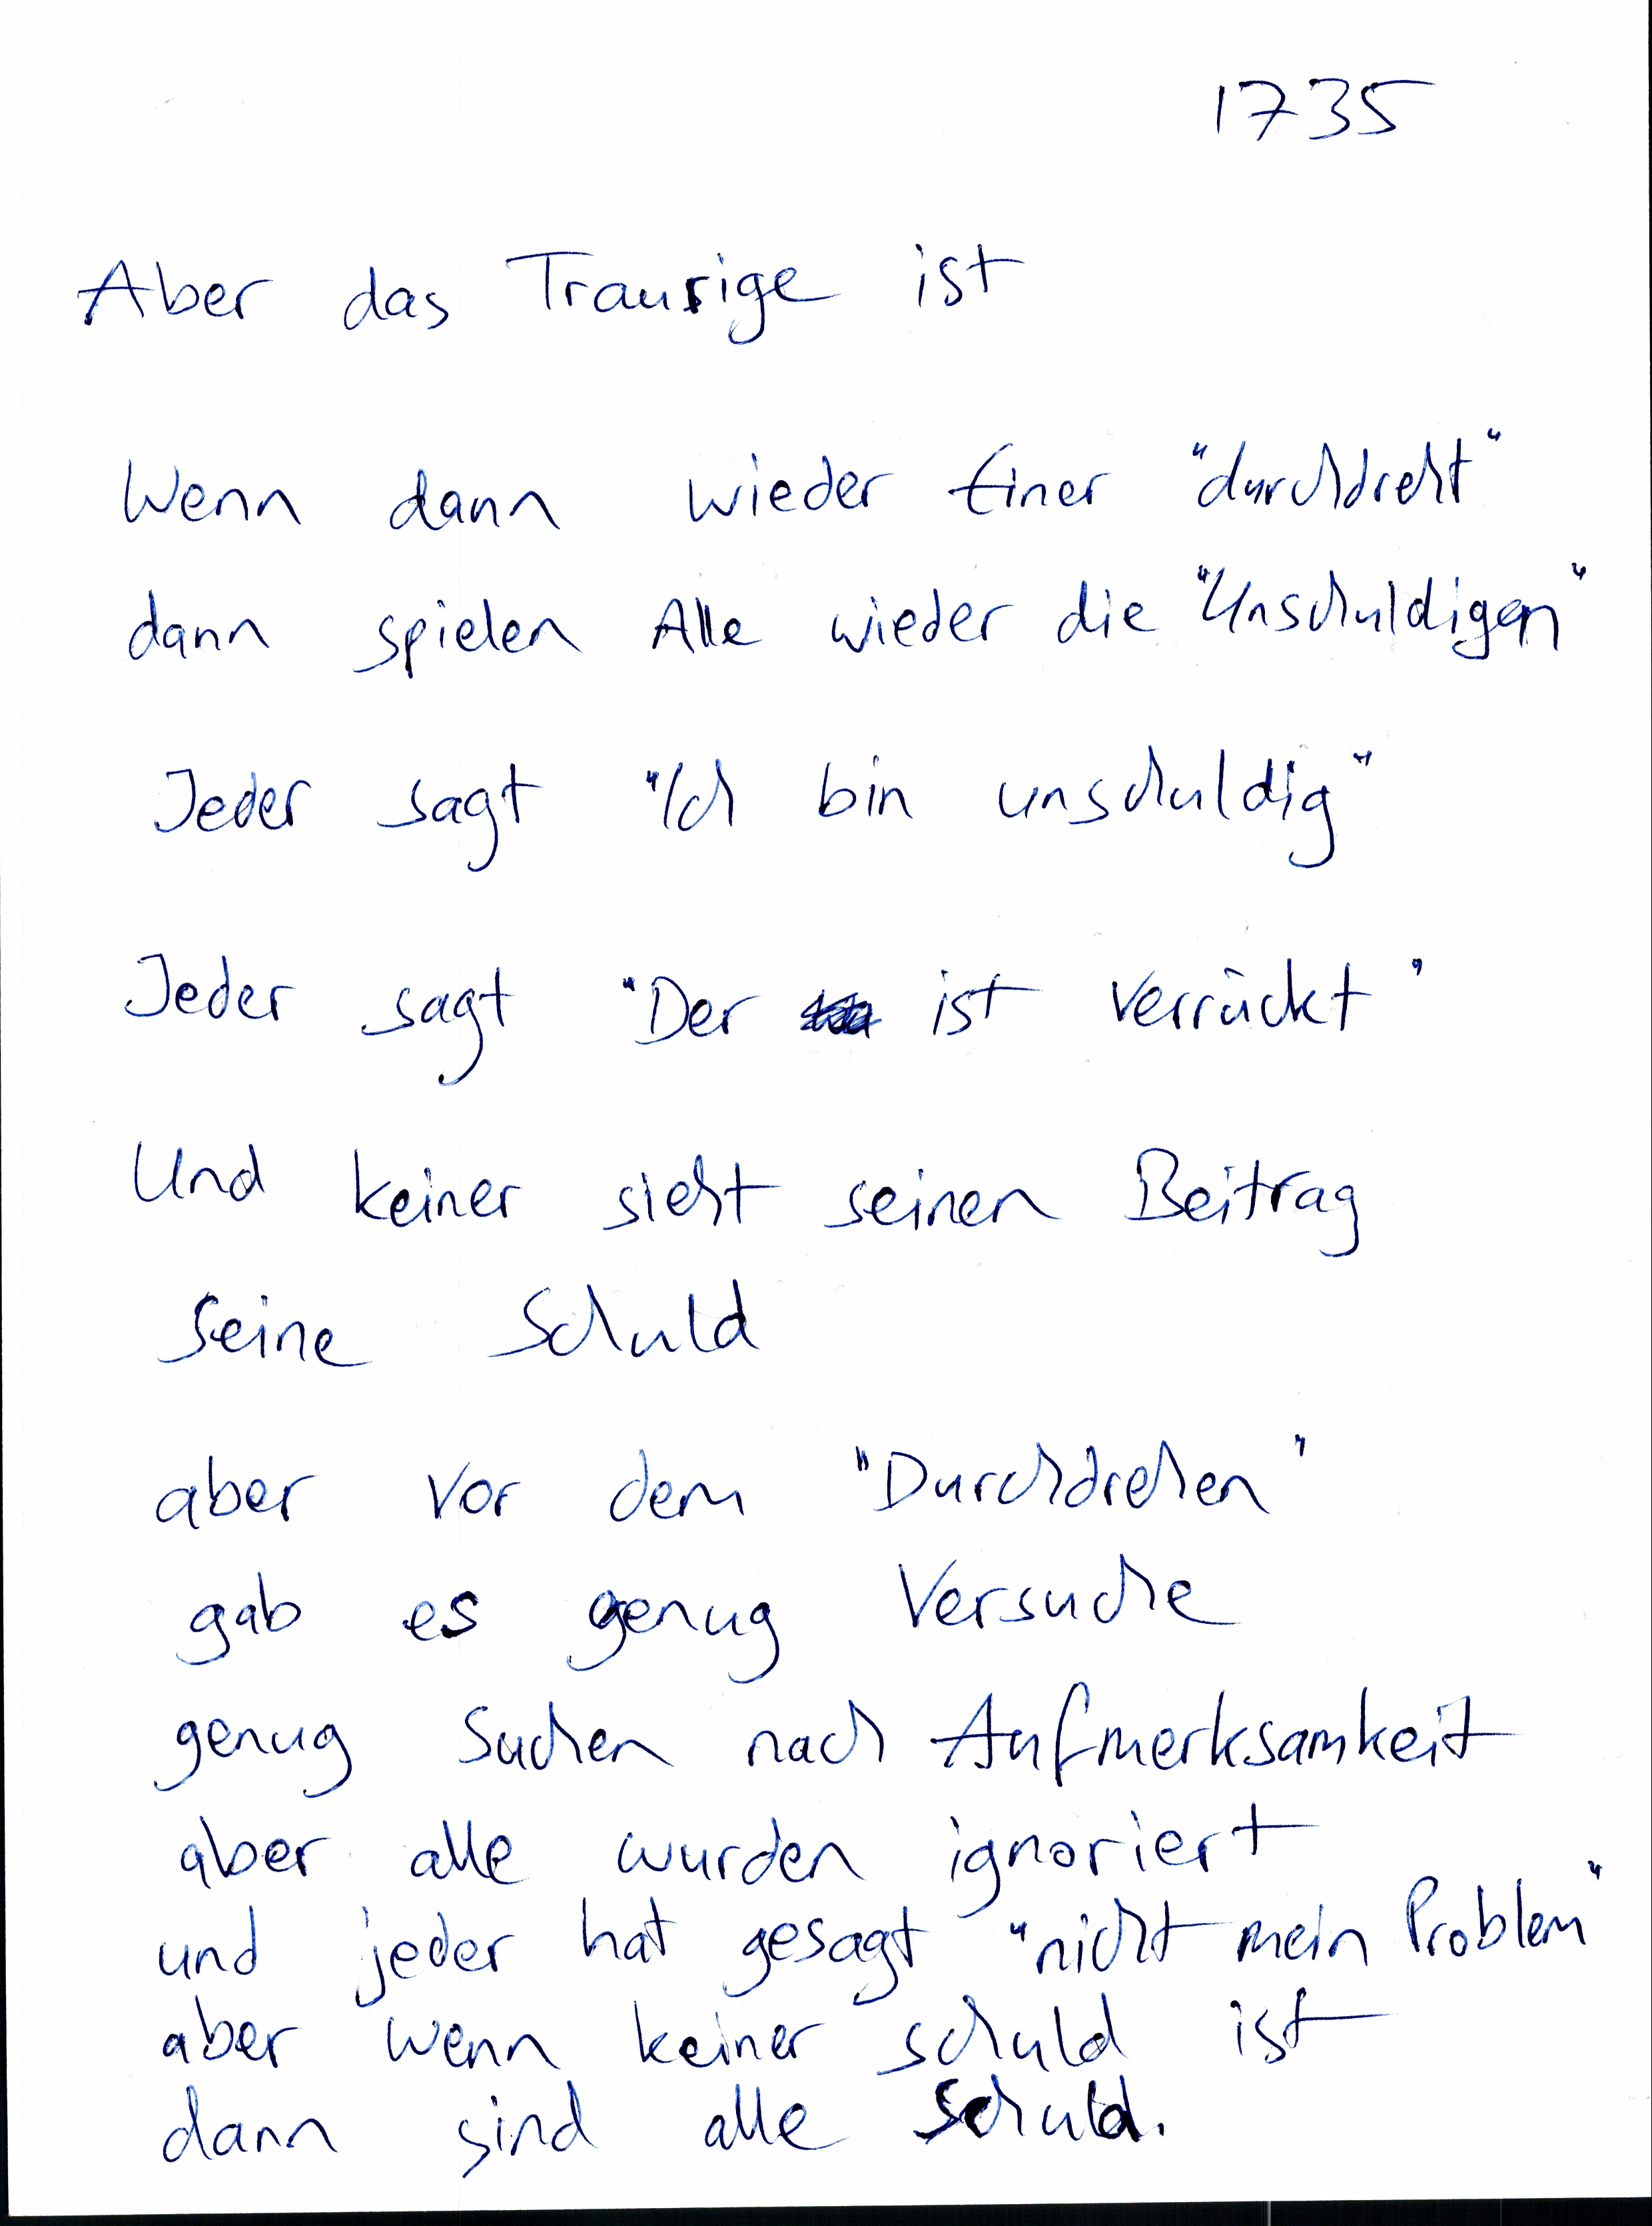 1735
Aber das Traurige ist
Wenn dann wieder Einer "durchdreht"
dann spielen Alle wieder die "Unschuldigen"
Jeder sagt "Ich bin unschuldig"
Jeder sagt "Der ist verrückt"
Und keiner sieht seinen Beitrag
seine Schuld
aber vor dem "Durchdrehen"
gab es genug Versuche
genug Suchen nach Aufmerksamkeit
aber alle wurden ignoriert
und jeder hat gesagt "nicht mein Problem"
aber wenn keiner schuld ist
dann sind alle Schuld.